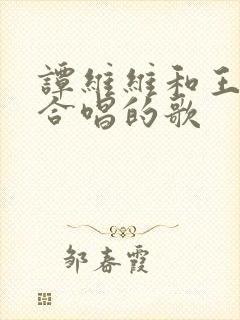 譚維維和王
合唱的歌
邹春霞